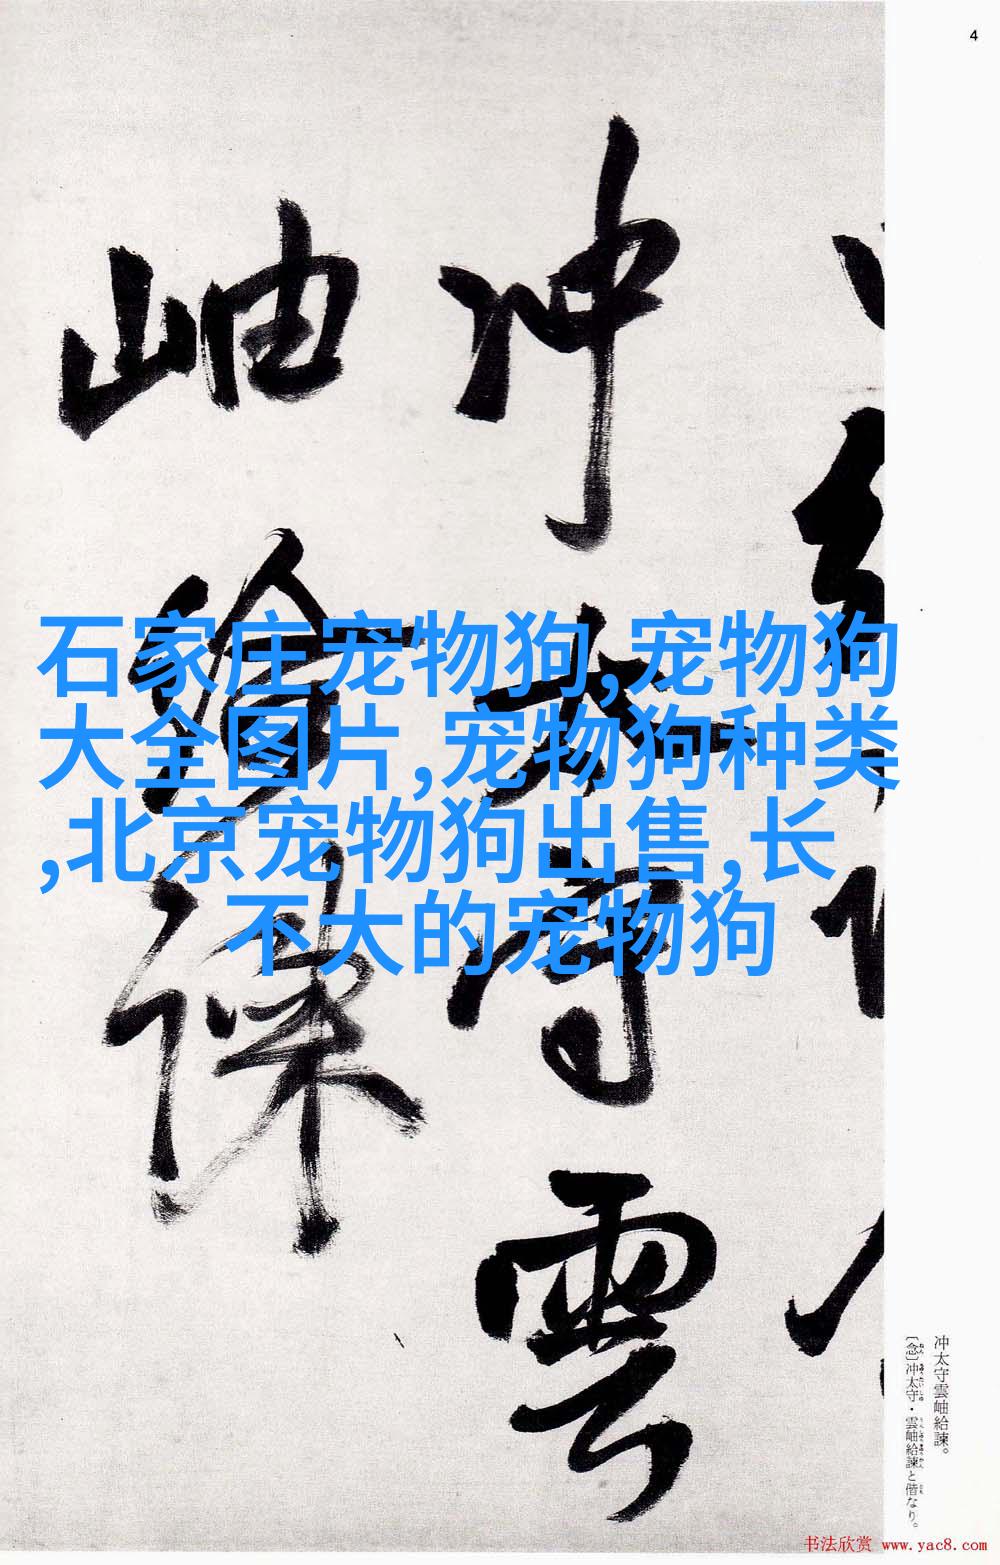 4
冲太守雲
岫給諫
石家庄宠物狗,宠物狗
大全图片,宠物狗种类
,北京宠物狗出售,长
不大的宠物狗
冲太守雲岫給諫。
〔念〕冲太守・雲岫給諫と偕なり。
书法欣赏 www.yac8.com